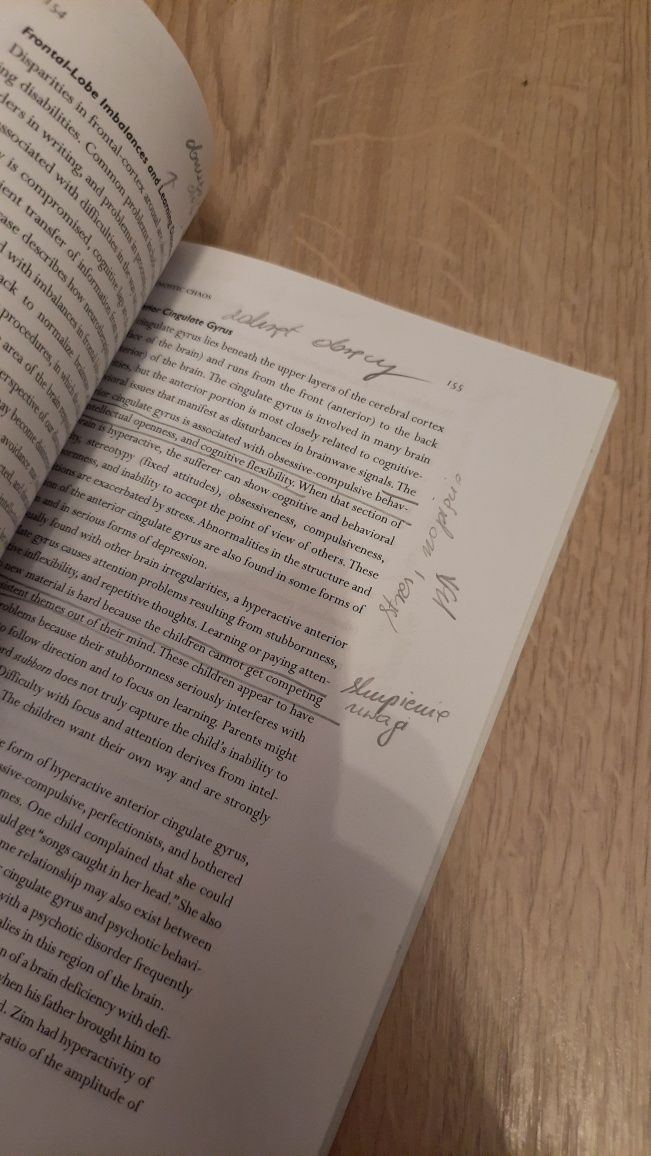 154
Frontal-Lobe Imbalances and Learning
Disparities in frontal-cortex arousal are
ing disabilities. Common problems
ders in writing, and problems in
ssociated with difficulties in the
y is compromised, cognitive
ient transfer of information
ase describes how
d with imbalances in
ack to normalize
procedures, in which
area of the brain
erspective of our
may become
avoidance
NOSTIC CHAOS
155
rior Cingulate Gyrus
cingulate gyrus lies beneath the upper layers of the cerebral cortex
ace of the brain) and runs from the front (anterior) to the back
erior) of the brain. The cingulate gyrus is involved in many brain
ties, but the anterior portion is most closely related to cognitive-
vioral issues that manifest as disturbances in brainwave signals. The
rior cingulate gyrus is associated with obsessive-compulsive behav-
intellectual openness, and cognitive flexibility. When that section of
rain is hyperactive, the sufferer can show cognitive and behavioral
ty, stereotypy (fixed attitudes), obsessiveness, compulsiveness,
ernness, and inability to accept the point of view of others. These
tions are exacerbated by stress. Abnormalities in the structure and
on of the anterior cingulate gyrus are also found in some forms of
and in serious forms of depression.
ually found with other brain irregularities, a hyperactive anterior
ate gyrus causes attention problems resulting from stubbornness,
tive inflexibility, and repetitive thoughts. Learning or paying atten-
new material is hard because the children cannot get competing
sistent themes out of their mind. These children appear to have
problems because their stubbornness seriously interferes with
to follow direction and to focus on learning. Parents might
ord stubborn does not truly capture the child's inability to
Difficulty with focus and attention derives from intel-
The children want their own way and are strongly
e form of hyperactive anterior cingulate gyrus,
ssive-compulsive, perfectionists, and bothered
mes. One child complained that she could
uld get "songs caught in her head." She also
me relationship may also exist between
r cingulate gyrus and psychotic behavi-
with a psychotic disorder frequently
alies in this region of the brain.
n of a brain deficiency with defi-
when his father brought him to
d. Zim had hyperactivity of
ratio of the amplitude of
stres, napięcie
skupienie
uwagi